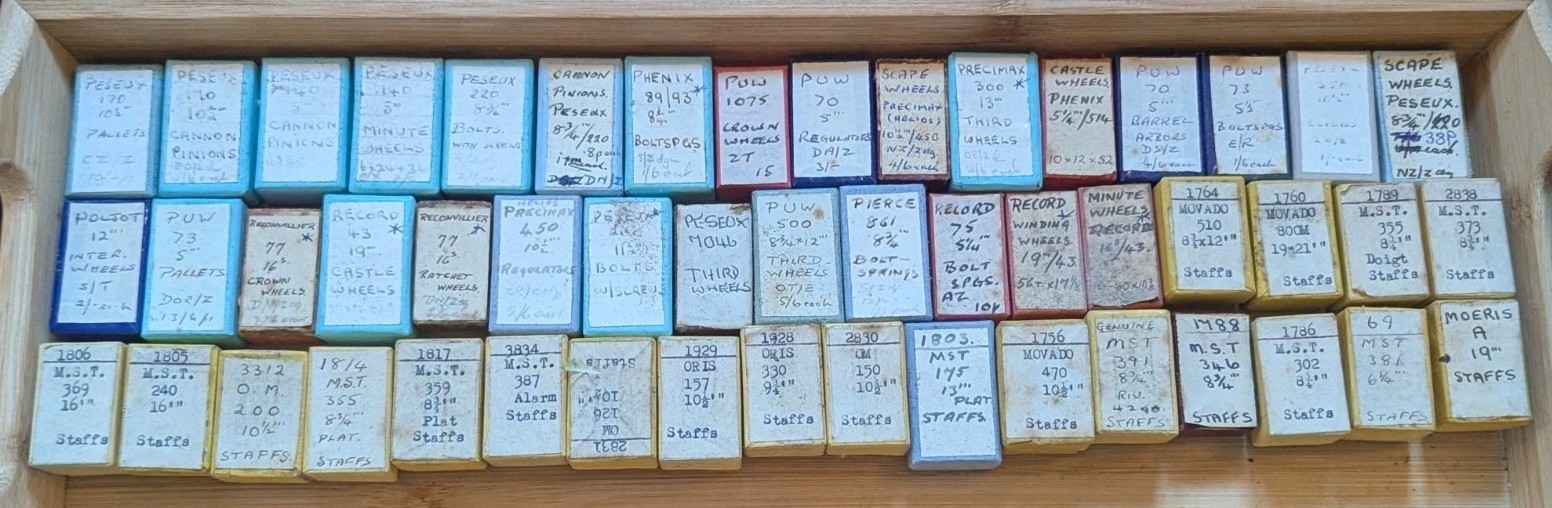 PESEUX
170
10½'''
PALLETS
PESEUX
170
10½'''
CANNON
PINIONS
PESEUX
140
5'''
CANNON
PINIONS
PESEUX
140
5'''
MINUTE
WHEELS
PESEUX
220
8¾'''
BOLTS.
WITH SCREWS
CANNON
PINIONS.
PESEUX
8¾/220
PHENIX
89/93*
8¼'''
BOLTSPGS
PUW
1075
CROWN
WHEELS
2T
15
PUW
70
5'''
REGULATORS
DA/Z
3/-
SCAPE
WHEELS
PRECIMAX
(HELIOS)
10½'''/450
NZ/Zdg
4/6 each
PRECIMAX
300 *
13'''
THIRD
WHEELS
CASTLE
WHEELS
PHENIX
5¼'''/514
10 x 12 x 52
PUW
70
5'''
BARREL
ARBORS
DS/Z
4/6 each
PUW
73
5½
BOLTSPGS
E/R
1/6 each
SCAPE
WHEELS.
PESEUX.
8¾/220
38P
NZ/Z dg
POLJOT
12'''
INTER.
WHEELS
S/T
2/- each
PUW
73
5'''
PALLETS
DOE/Z
13/6 p/1
RECONVILLIER
*
77
16s.
CROWN
WHEELS.
RECORD
43 *
19'''
CASTLE
WHEELS
RECONVILLIER
77 *
16s.
RATCHET
WHEELS
HELIOS
PRECIMAX
450
10½'''
REGULATORS
PESEUX
*
BOLTS
W/SCREWS
PESEUX
THIRD
WHEELS
PUW
500
8¾x12'''
THIRD
WHEELS
OT/E
5/6 each
PIERCE
861
8¾'''
BOLT-
SPRINGS
RECORD
75
5¼'''
BOLT
SPGS.
AZ
10p
RECORD
WINDING
WHEELS.
19'''/43.
MINUTE
WHEELS
RECORD
1764
MOVADO
510
8¾x12'"
Staffs
1760
MOVADO
800M
19-21'"
Staffs
1789
M.S.T.
355
8¾'"
Doigt
Staffs
2838
M.S.T.
373
8¾'"
Staffs
1806
M.S.T.
369
16'"
Staffs
1805
M.S.T.
240
16'"
Staffs
3312
O.M.
200
10½'''
STAFFS
1814
M.S.T.
355
8¾'''
PLAT.
STAFFS
1817
M.S.T.
359
8¾'"
Plat
Staffs
3834
M.S.T.
387
Alarm
Staffs
2831
OM
126
10½'"
Staffs
1929
ORIS
157
10½'"
Staffs
1928
ORIS
330
9¼'"
Staffs
2830
OM
150
10½'"
Staffs
1803.
MST
175
13'''
PLAT.
STAFFS.
1756
MOVADO
470
10½'"
Staffs
GENUINE
MST
391
8¾'''
RIV.
STAFFS
1788
M.S.T
346
8¾'''
STAFFS
1786
M.S.T.
302
8¾'"
Staffs
69
MST
381
6¾'''
STAFFS
MOERIS
A
19'''
STAFFS